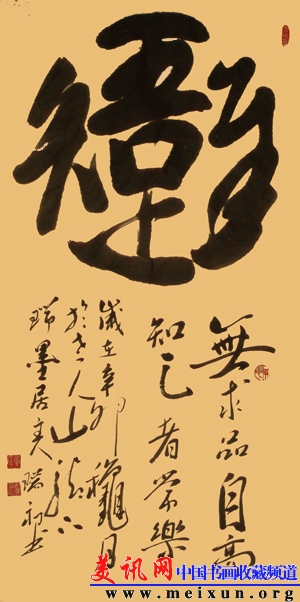 唯吾知足
無求品自高
知足者常樂
歲在辛卯龝月
於老人山下
瑞墨居主人瑞初书
美讯网 中国书画收藏频道
www.meixun.org